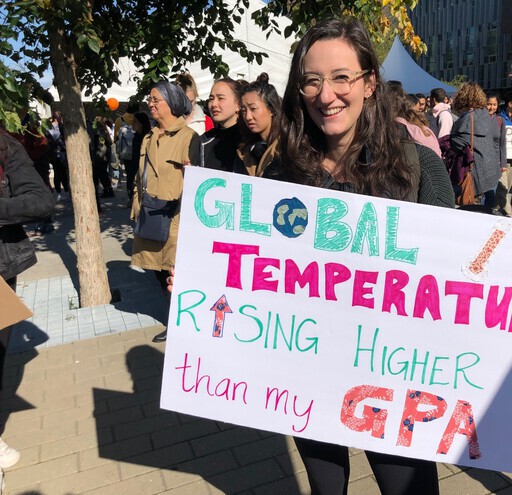 GLOBAL
TEMPERATU
RISING HIGHER
than my GPA